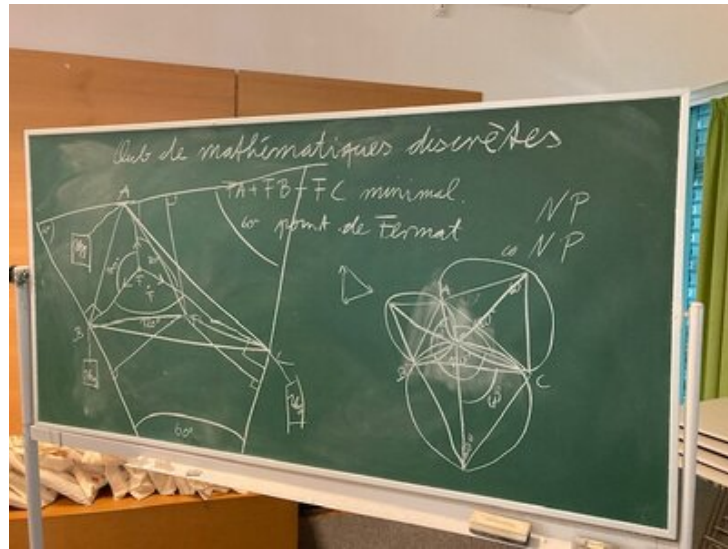 Club de mathématiques discrètes
FA + FB + FC minimal.
point de Fermat
NP
NP
A
60°
F
B
120°
C
60°
A
B
C
60°